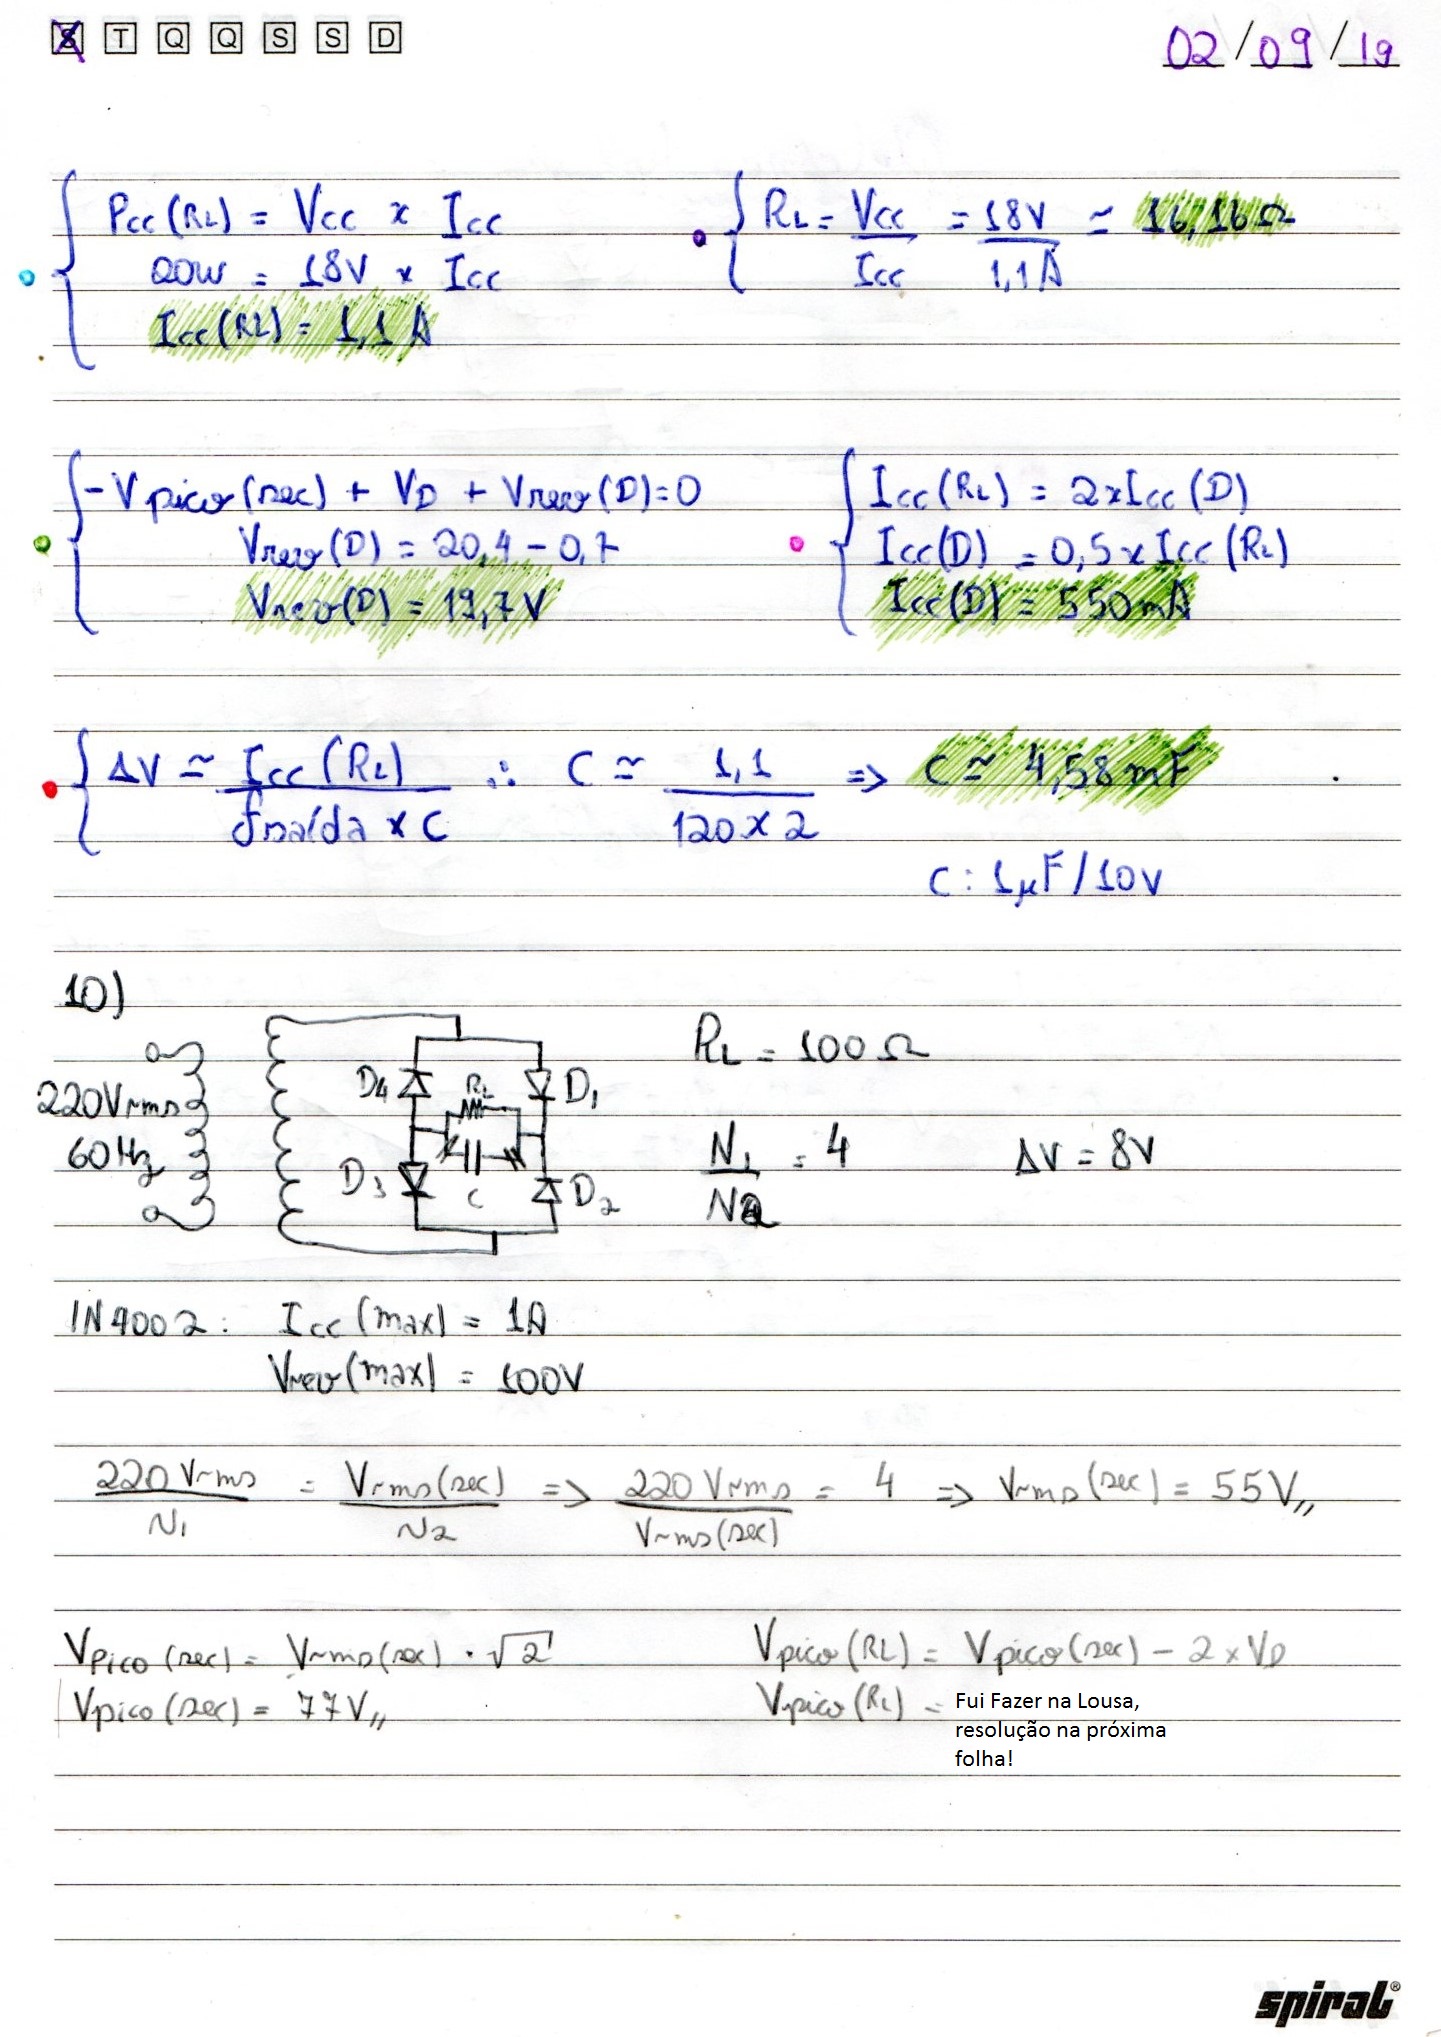 S T Q Q S S D
02/09/19
Pcc(RL) = Vcc x Icc
20W = 18V x Icc
Icc(RL) = 1,1 A
RL = Vcc/Icc = 18V/1,1A ≃ 16,16Ω
-Vpico(sec) + VD + Vrev(D)=0
Vrev(D) = 20,4 - 0,7
Vrev(D) = 19,7V
Icc(RL) = 2xIcc(D)
Icc(D) = 0,5xIcc(RL)
Icc(D) = 550mA
ΔV ≃ Icc(RL)/fsaída x C ∴ C ≃ 1,1/120x2 => C ≃ 4,58mF
C: 1μF/10V
10)
220Vrms
60Hz
D4
RL
D1
D3
C
D2
RL = 100Ω
N1/N2 = 4
ΔV = 8V
1N4002: Icc(max) = 1A
Vrev(max) = 100V
220Vrms/N1 = Vrms(sec)/N2 => 220Vrms/Vrms(sec) = 4 => Vrms(sec) = 55V,,
Vpico(sec) = Vrms(sec) · √2
Vpico(sec) = 77V,,
Vpico(RL) = Vpico(sec) - 2xVD
Vpico(RL) =
Fui Fazer na Lousa,
resolução na próxima
folha!
spiral®